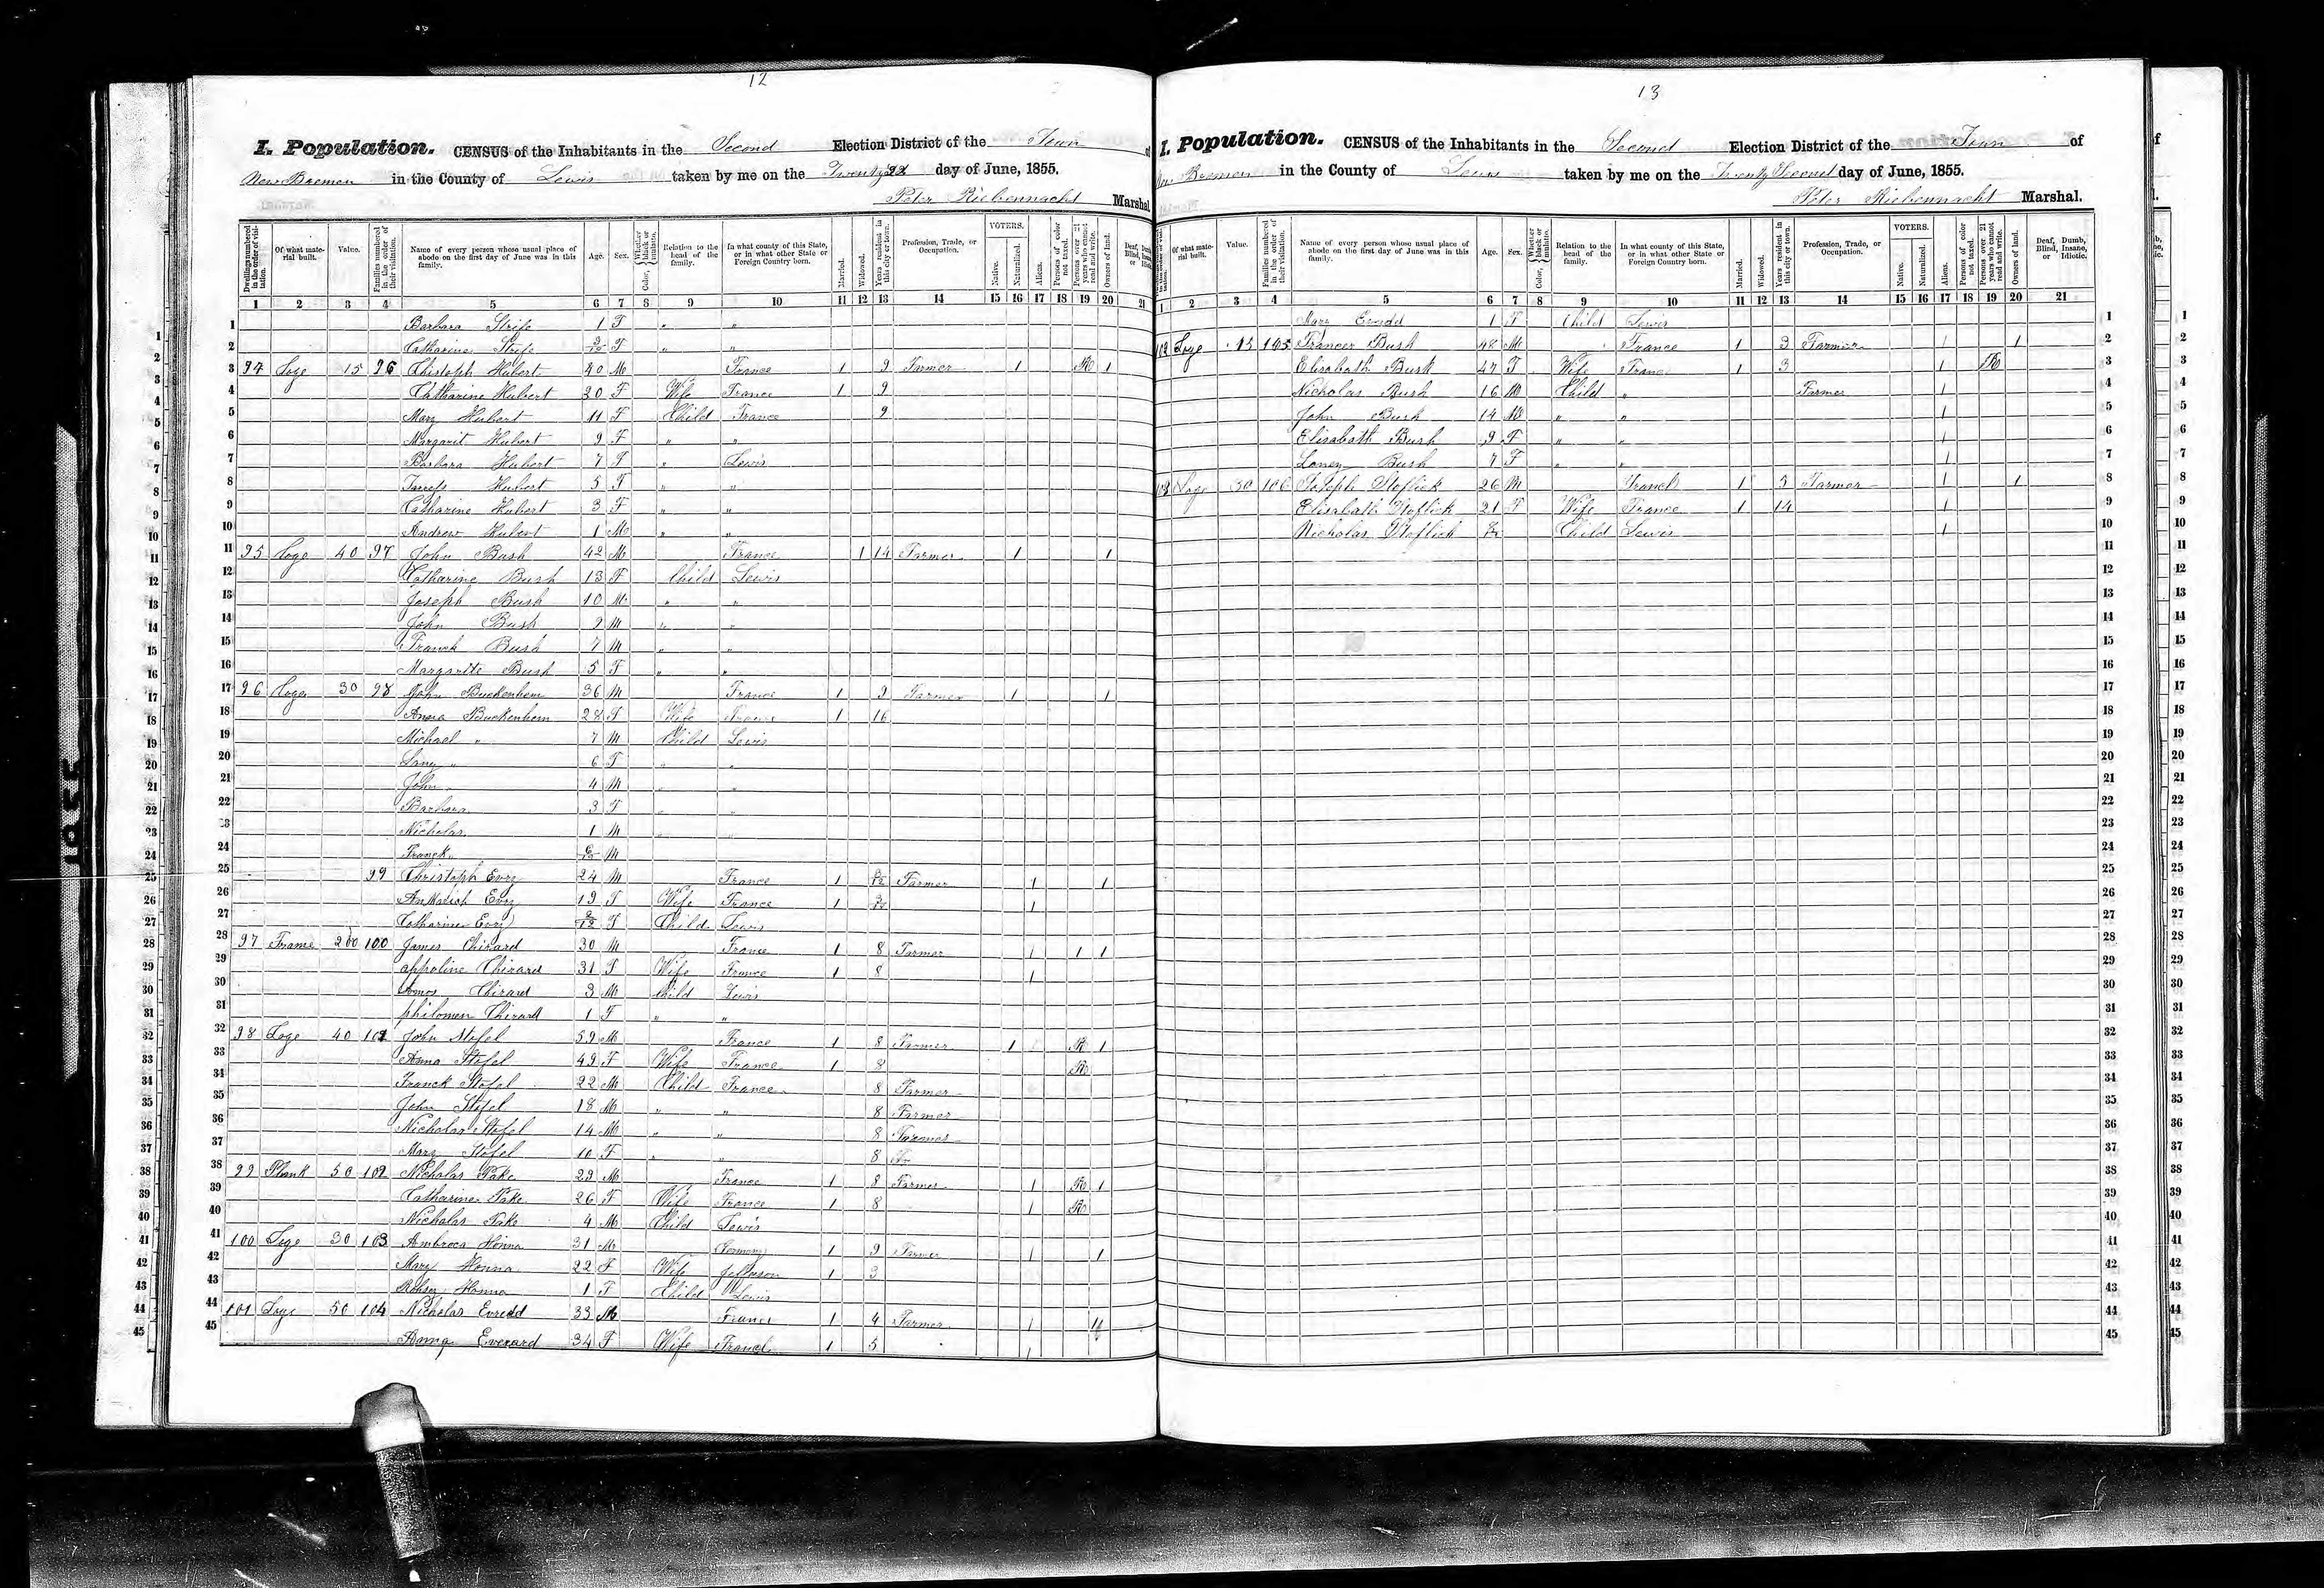 12
I. Population. CENSUS of the Inhabitants in the Second Election District of the Town of
New Bremen in the County of Lewis taken by me on the Twenty 22 day of June, 1855.
Peter Riebennacht Marshal
Dwellings numbered in the order of visitation. Of what material built. Value. Families numbered in the order of their visitation. Name of every person whose usual place of abode on the first day of June was in this family. Age. Sex. Color, Whether black or mulatto. Relation to the head of the family. In what county of this State, or in what other State or Foreign Country born. Married. Widowed. Years resident in this city or town. Profession, Trade, or Occupation. VOTERS. Native. Naturalized. Aliens. Persons of color not taxed. Persons over 21 years who cannot read and write. Owners of land. Deaf, Blind, or
1 2 3 4 5 6 7 8 9 10 11 12 13 14 15 16 17 18 19 20 21
1 Barbara Strife 1 F " "
2 Catharine Strife F " "
3 94 Loge 15 96 Chistoph Hubert 40 M France 1 9 Farmer 1 R 1
4 Catharine Hubert 20 F Wife France 1 9
5 Mary Hubert 11 F Child France 9
6 Margarit Hubert 9 F " "
7 Barbara Hubert 7 F " Lewis
8 Hubert 5 F " "
9 Catharine Hubert 3 F " "
10 Andrew Hubert 1 M " "
11 95 Loge 40 97 John Bush 42 M France 1 14 Farmer 1 1
12 Catharine Bush 13 F Child Lewis
13 Joseph Bush 10 M " "
14 John Bush 9 M " "
15 Franck Bush 7 M " "
16 Margarite Bush 5 F " "
17 96 Loge 30 98 John Buckenhem 36 M France 1 9 Farmer 1 1
18 Anna Buckenhem 28 F Wife France 1 16
19 Michael " 7 M Child Lewis
20 Lany " 6 F " "
21 John " 4 M " "
22 Barbara 3 F " "
23 Nicholas 1 M " "
24 Franck " M
25 99 Christoph Evry 24 M France 1 Farmer 1 1
26 Evry 19 F Wife France 1 1
27 Catharine Evry F Child Lewis
28 97 Frame 200 100 James Chirard 30 M France 1 8 Farmer 1 1 1
29 appoline Chirard 31 F Wife France 1 8 1
30 Amos Chirard 3 M Child Lewis
31 philomen Chirard 1 F " "
32 98 Loge 40 101 John Stofel 59 M France 1 8 Farmer 1 R 1
33 Anna Stofel 49 F Wife France 1 8 R
34 Franck Stofel 22 M Child France 8 Farmer
35 John Stofel 18 M " " 8 Farmer
36 Nicholas Stofel 14 M " " 8 Farmer
37 Mary Stofel 10 F " " 8
38 99 Plank 50 102 Nicholas Pake 29 M France 1 8 Farmer 1 R 1
39 Catharine Pake 26 F Wife France 1 8 1 R
40 Nicholas Pake 4 M Child Lewis
41 100 Loge 30 103 Ambroca Honna 31 M Germany 1 9 Farmer 1 1
42 Mary Honna 22 F Wife Jefferson 1 3
43 Honna 1 F Child Lewis
44 101 Loge 50 104 Nicholas Evredd 33 M France 1 4 Farmer 1
45 Anna Everard 34 F Wife France 1 5 1
13
I. Population. CENSUS of the Inhabitants in the Second Election District of the Town of
Bremen in the County of Lewis taken by me on the Twenty Second day of June, 1855.
Peter Riebennacht Marshal.
Of what material built. Value. Families numbered in the order of their visitation. Name of every person whose usual place of abode on the first day of June was in this family. Age. Sex. Color, Whether black or mulatto. Relation to the head of the family. In what county of this State, or in what other State or Foreign Country born. Married. Widowed. Years resident in this city or town. Profession, Trade, or Occupation. VOTERS. Native. Naturalized. Aliens. Persons of color not taxed. Persons over 21 years who cannot read and write. Owners of land. Deaf, Dumb, Blind, Insane, or Idiotic.
1 2 3 4 5 6 7 8 9 10 11 12 13 14 15 16 17 18 19 20 21
Mary Evredd 1 F Child Lewis 1
102 Loge 15 105 Francer Bush 48 M France 1 3 Farmer 1 1 2
Elisabath Bush 47 F Wife France 1 3 1 R 3
Nicholas Bush 16 M Child " Farmer 1 4
John Bush 14 M " " 1 5
Elisabath Bush 9 F " " 1 6
Loney Bush 7 F " " 1 7
103 Loge 30 106 Stoflick 26 M France 1 3 Farmer 1 1 8
Elisabath Stoflick 21 F Wife France 1 14 1 9
Nicholas Stoflick Child Lewis 1 10
11
12
13
14
15
16
17
18
19
20
21
22
23
24
25
26
27
28
29
30
31
32
33
34
35
36
37
38
39
40
41
42
43
44
45